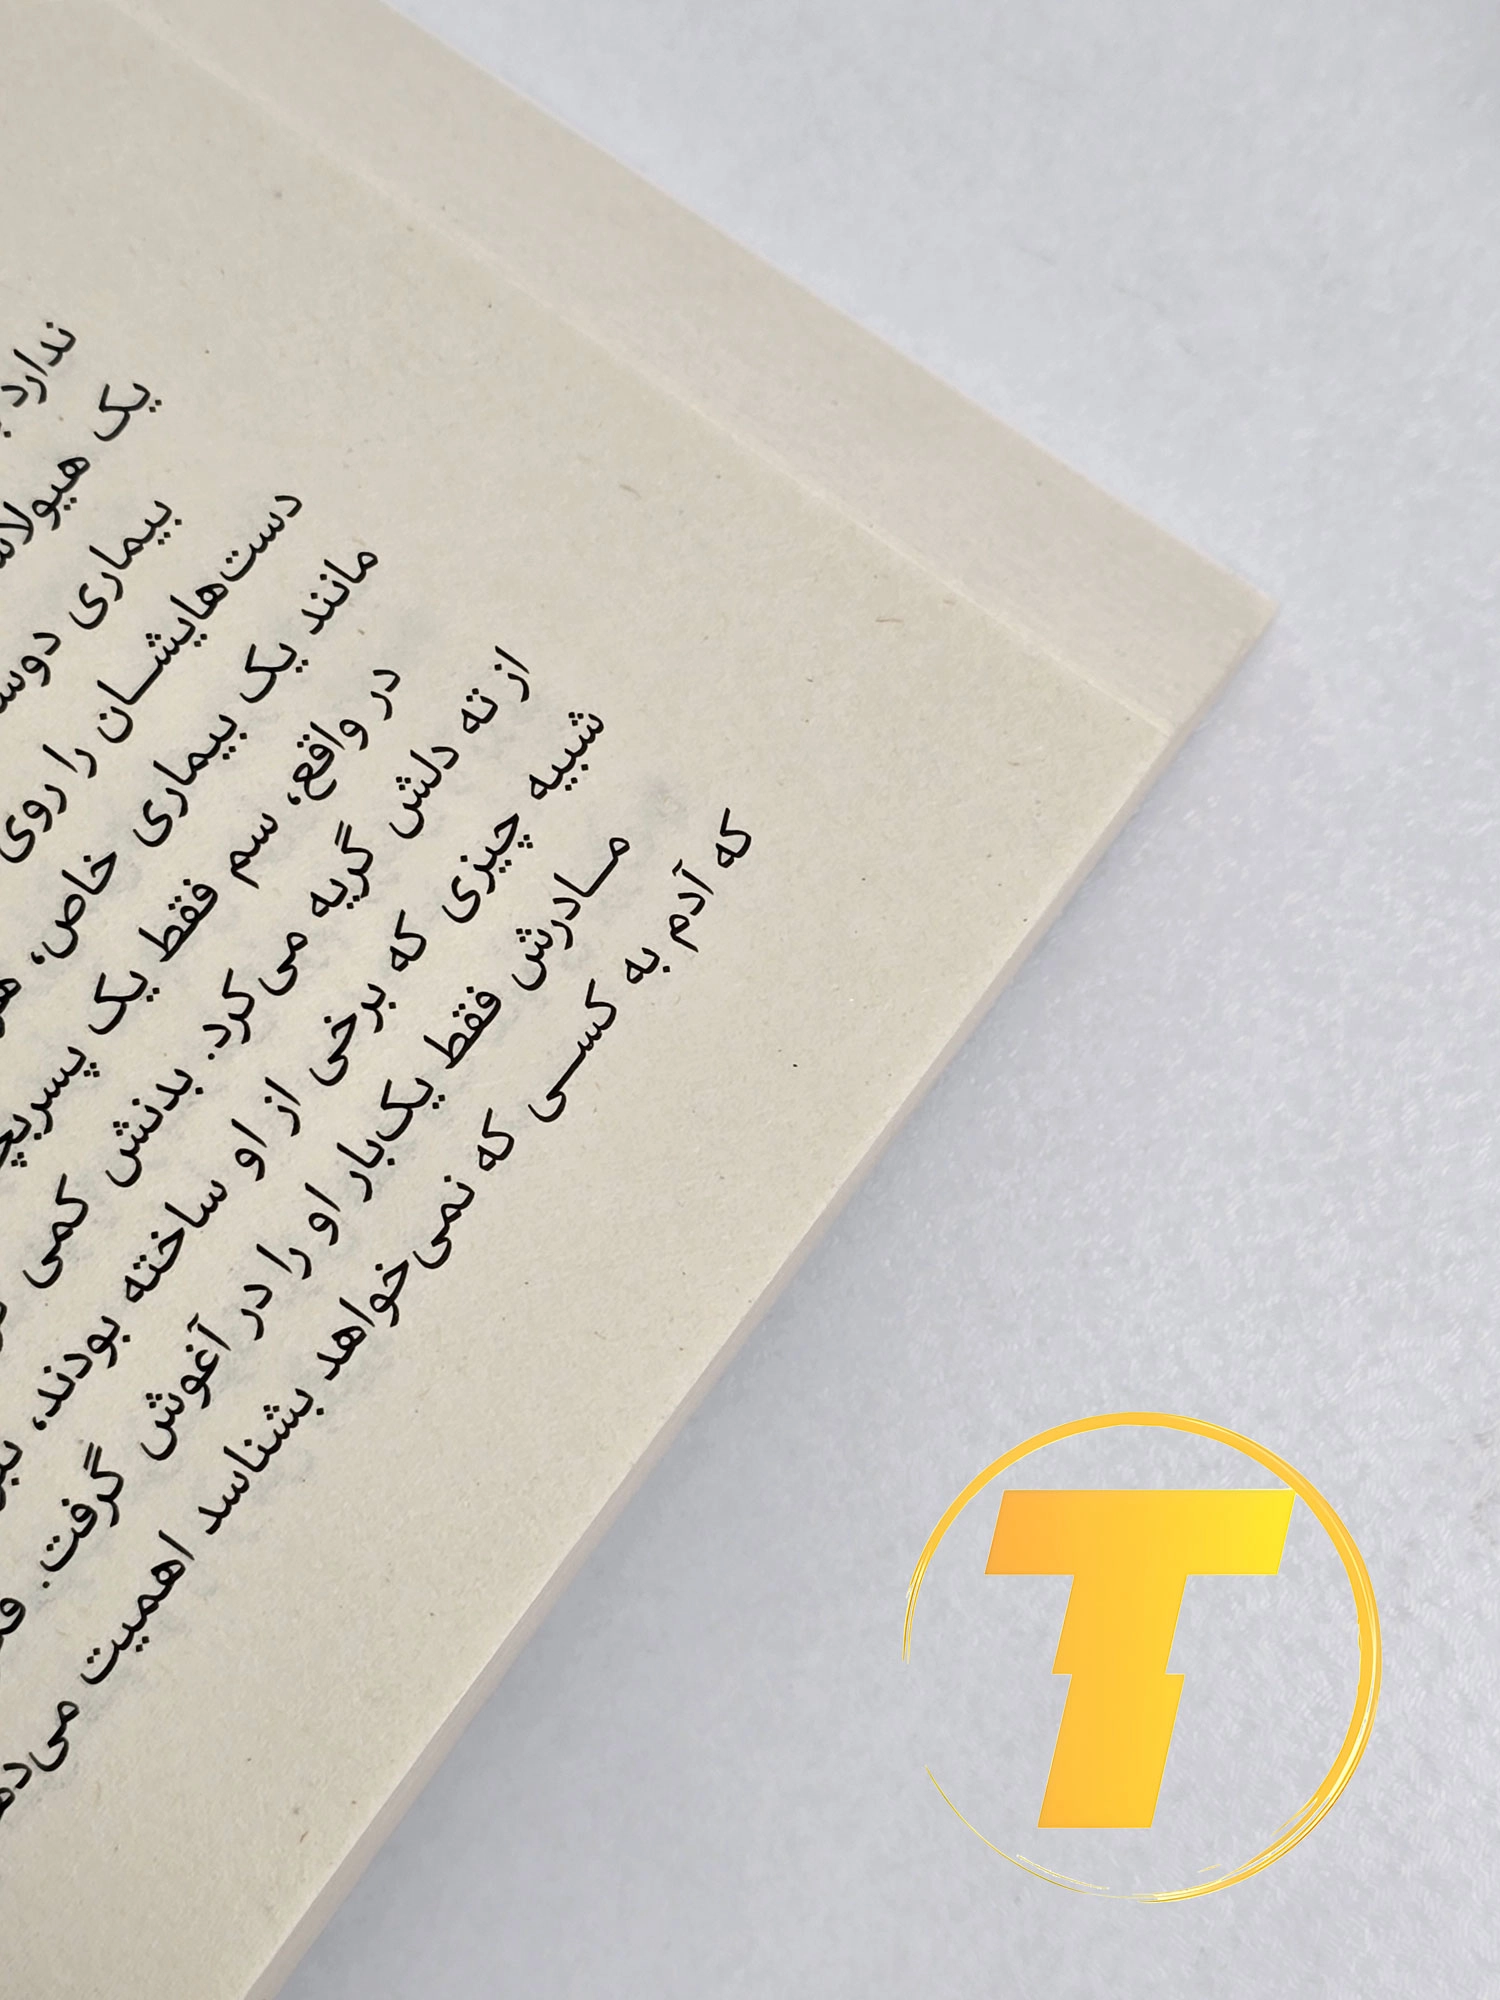 ندارد
یک
بیماری
دست‌هایشان را روی
مانند یک بیماری خاص،
در واقع، سم فقط یک
از ته دلش گریه می‌کرد. بدنش کمی
شبیه چیزی که برخی از او ساخته بودند،
مادرش فقط یک‌بار او را در آغوش گرفت.
که آدم به کسی که نمی‌خواهد بشناسد اهمیت
T